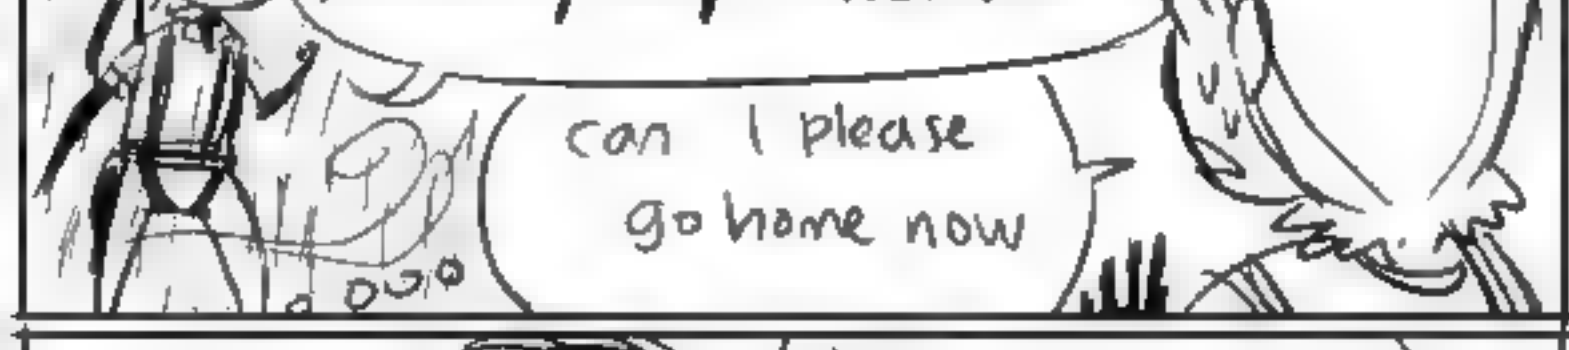 can I please
go home now